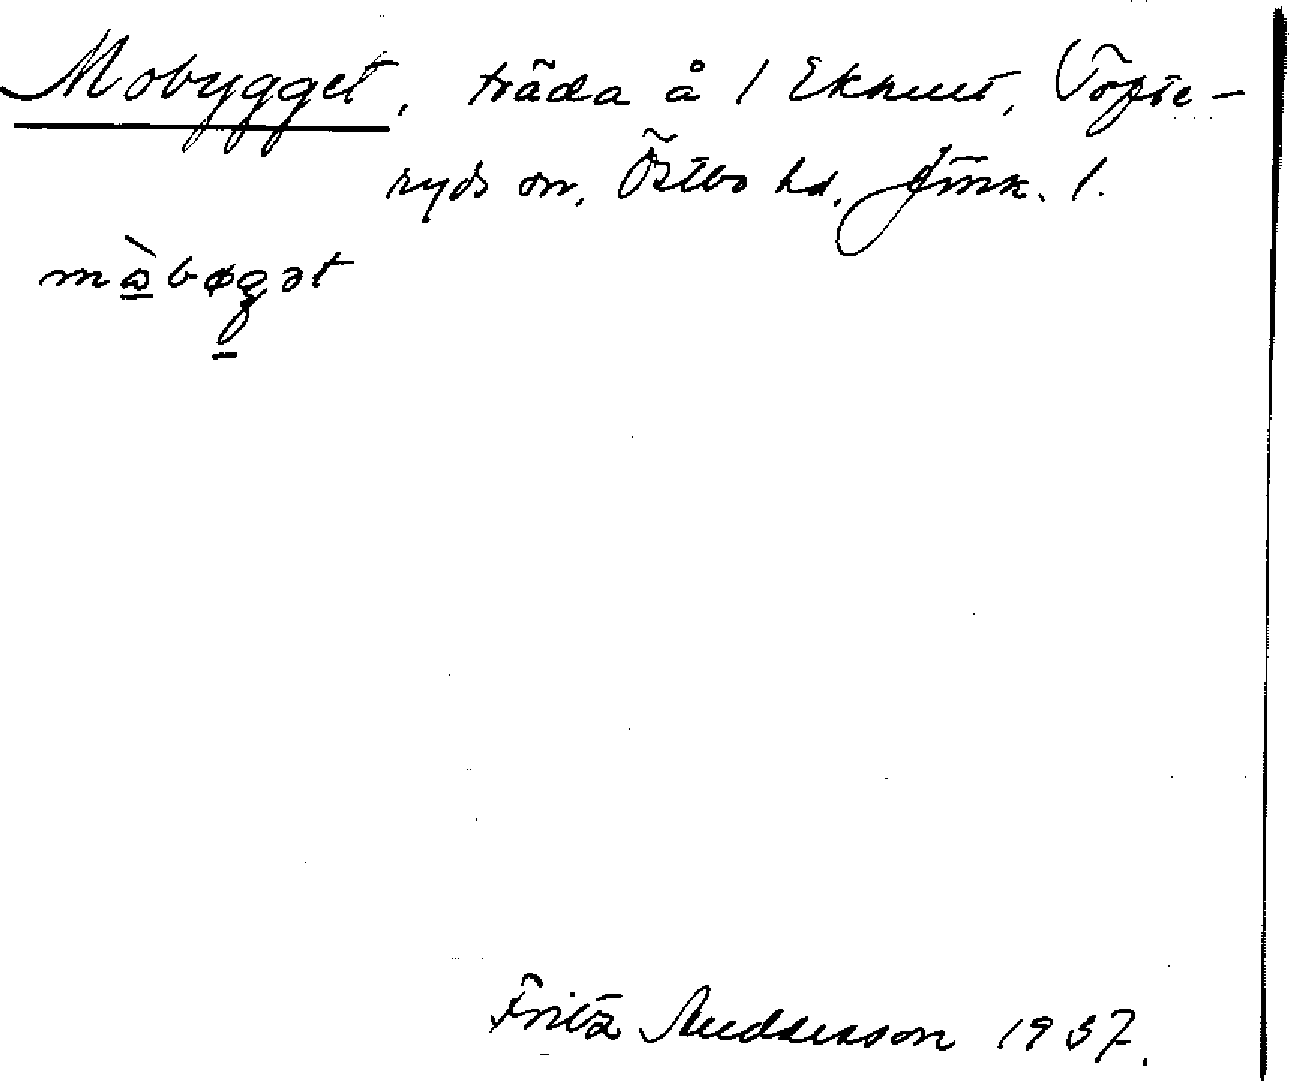 Mobygget, träda å 1 Eknut, Tofte-
ryds sn, Östbo hd. Jönk. l.
mɷ̀bøgət
Fritz Andersson 1937.